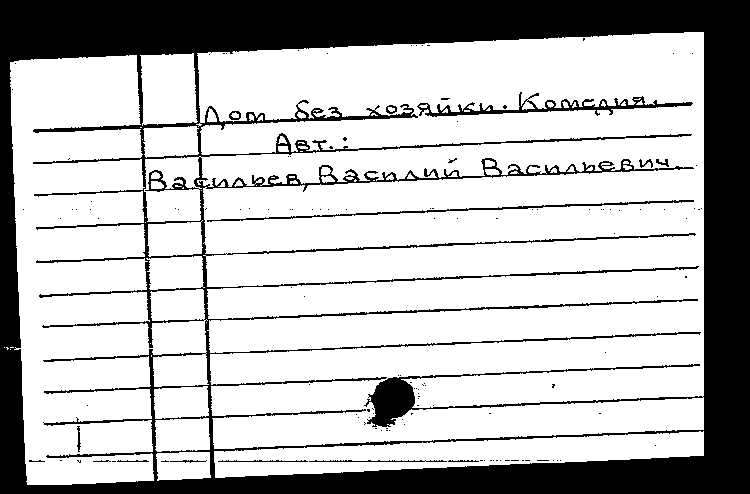 Дом без хозяйки. Комедия.
Авт.:
Васильев, Василий Васильевич.